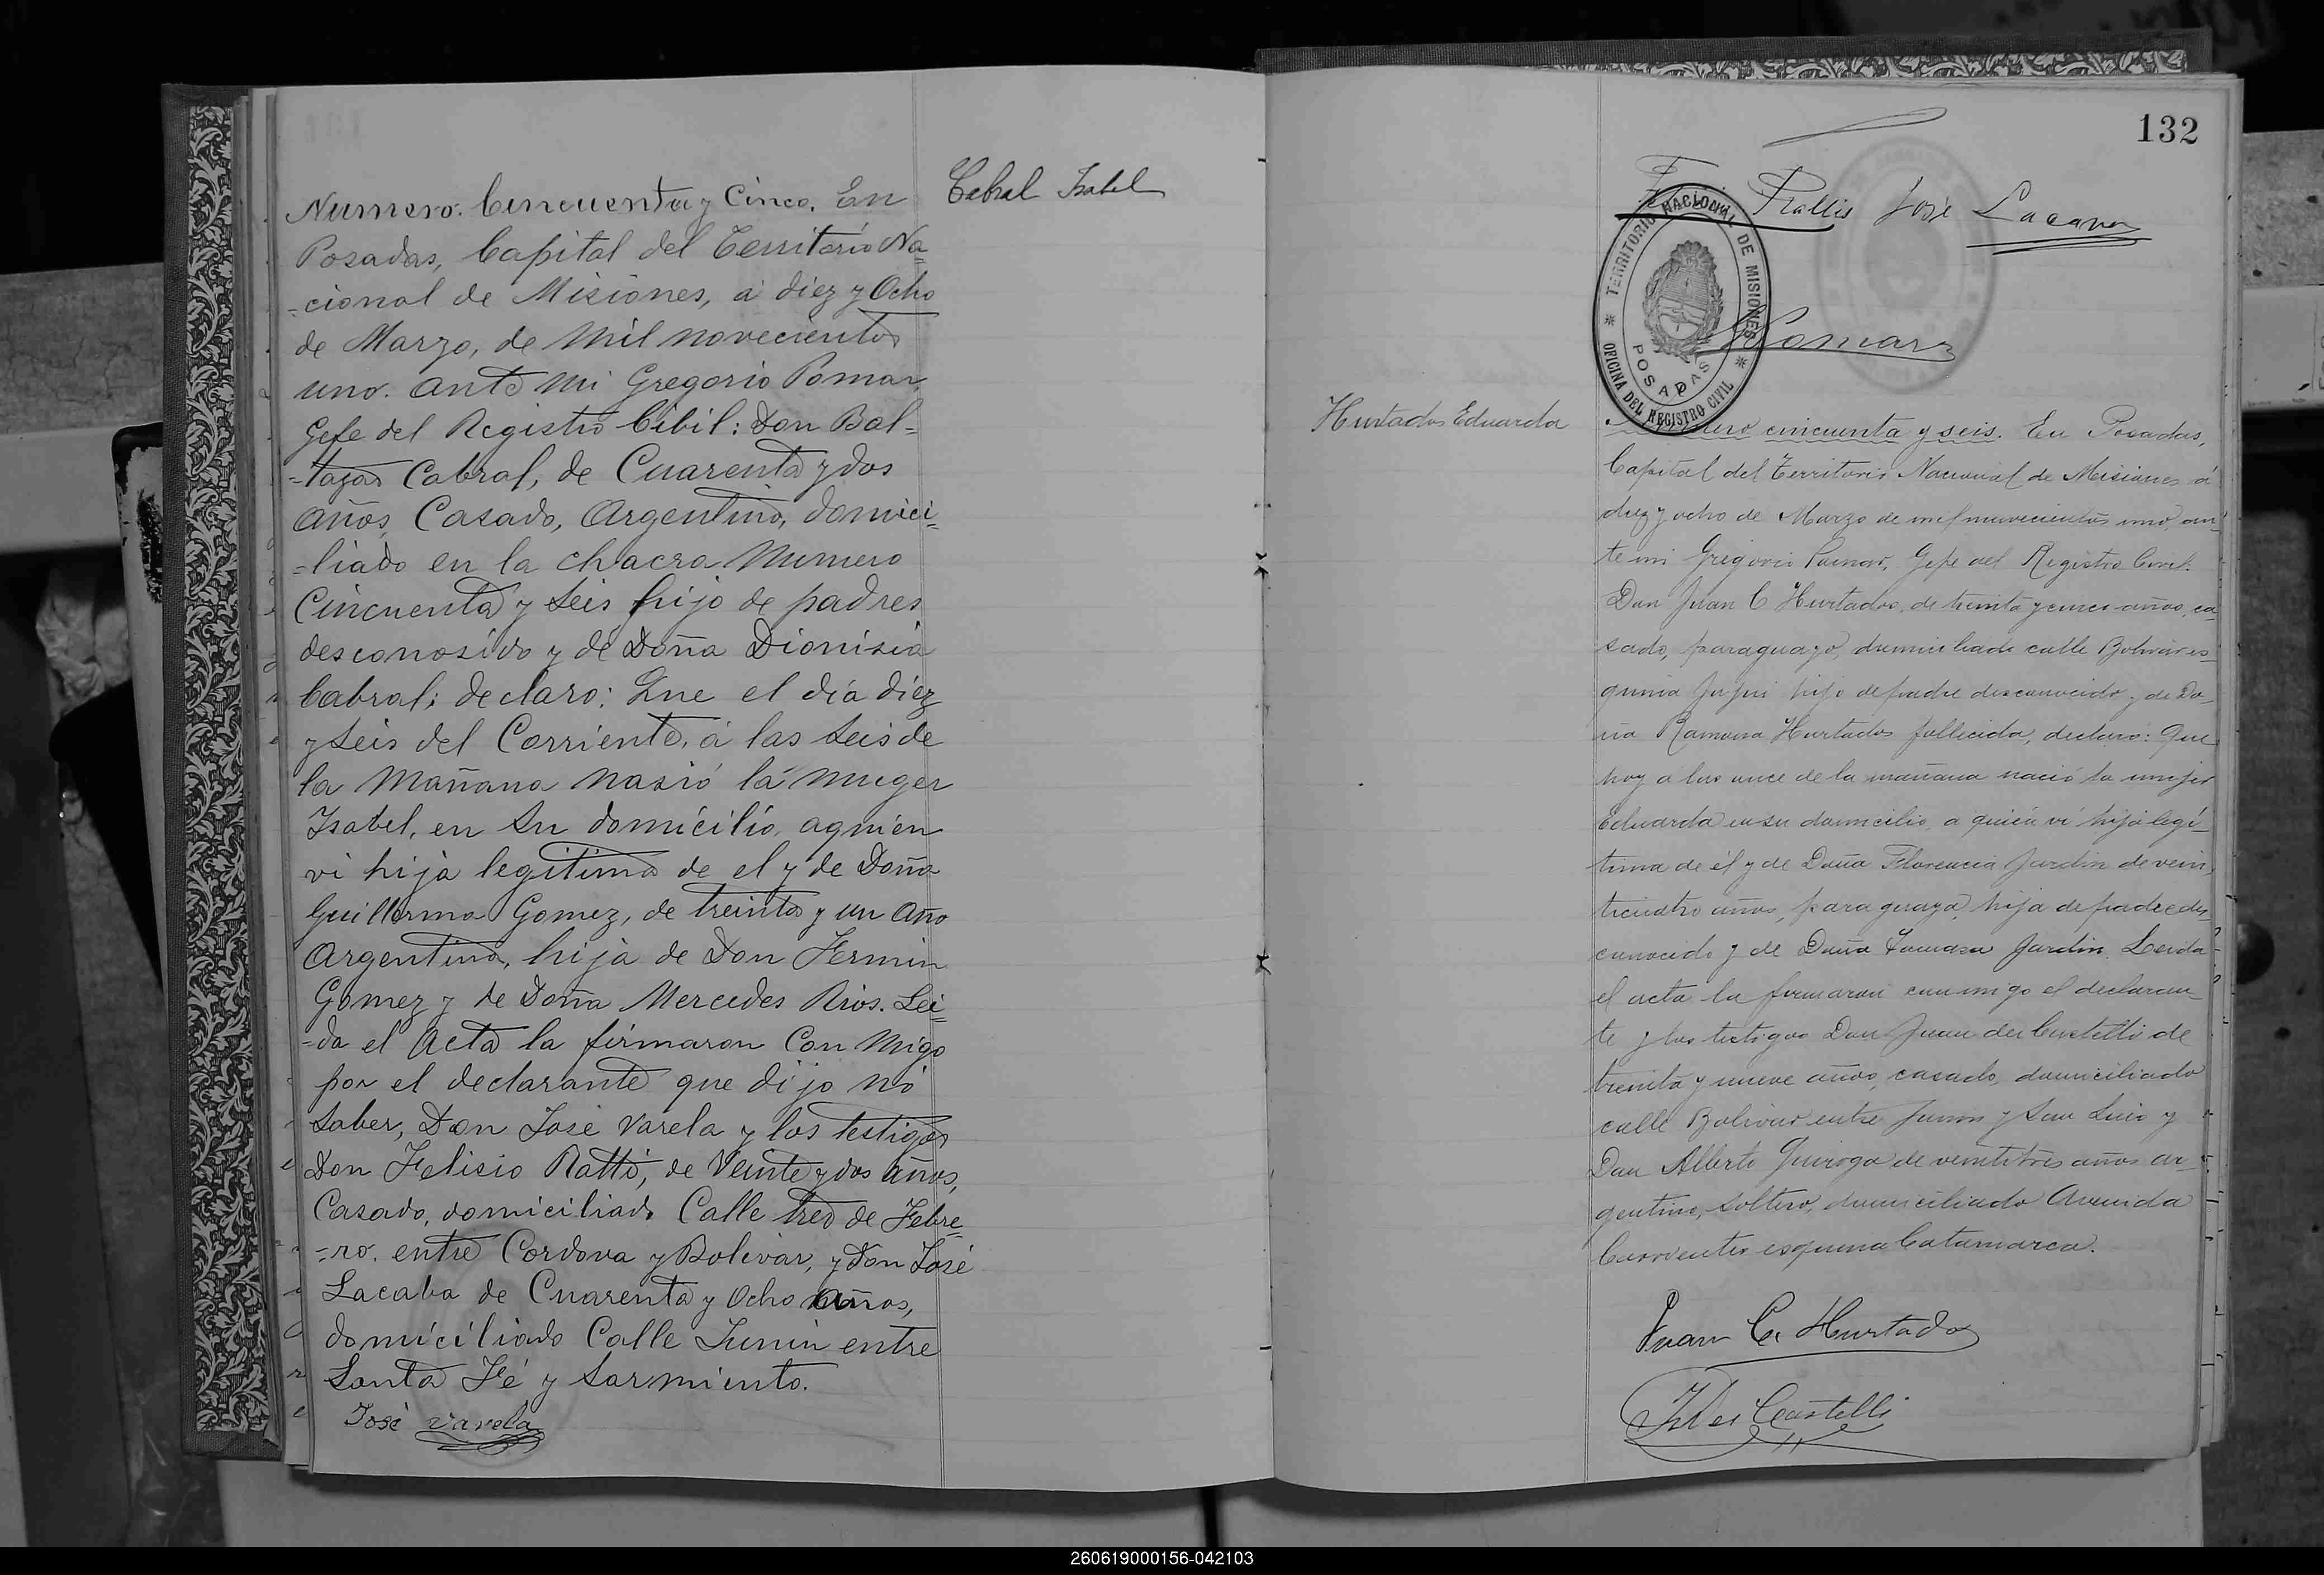 Cabral Isabel
Numero. Cincuenta y Cinco. En
Posadas, Capital del Territorio Na=
=cional de Misiones, á diez y Ocho
de Marzo, de Mil novecientos
uno. ante mi Gregorio Pomar,
Gefe del Registro Cibil: Don Bal=
=tazar Cabral, de Cuarenta y dos
años, Casado, Argentino, domici=
=liado en la chacra Numero
Cincuenta y Seis hijo de padres
desconosido y de Doña Dionisia
Cabral; declaro: Que el día diez
y Seis del Corriente, á las Seis de
la Mañana nasió la muger
Isabel, en Su domicilio, aquien
vi hija legitima de el y de Doña
Guillerma Gomez, de treinta y un Año
Argentina, hija de Don Fermin
Gomez y de Doña Mercedes Rios. Lei=
=da el Acta la firmaron Con Migo
por el declarante que dijo no
Saber, Don José Varela y los testigos
Don Felisio Ratti, de Veinte y dos años,
Casado, domiciliado Calle tres de Febre=
=ro. entre Cordova y Bolivar, y Don José
Lacaba de Cuarenta y Ocho años,
domiciliado Calle Junin entre
Santa Fé y Sarmiento.
José Varela
132
José Lacava
TERRITORIO NACIONAL DE MISIONES
POSADAS
OFICINA DEL REGISTRO CIVIL
Pomar
Hurtados Eduarda
cincuenta y seis. En Posadas,
Capital del Territorio Nacional de Misiones á
diez y ocho de Marzo de mil novecientos uno, an-
te mi Gregorio Pomar, Gefe del Registro Civil.
Don Juan C Hurtados, de treinta y cinco años, ca
sado, paraguayo, domiciliado calle Bolivar es-
quina Jujui hijo de padre desconocido y de Do-
ña Ramona Hurtados fallecida, declaró: Que
hoy á las once de la mañana nació la mujer
Eduarda en su domicilio, a quién vi hija legí-
tima de él y de Doña Florencia Jardin de vein
ticuatro años, paraguaya, hija de padre des-
conocido y de Doña Tomasa Jardin. Leida
el acta la firmaron conmigo el declaran-
te y los testigos Don Juan dei Castelli de
treinta y nueve años, casado, domiciliado
calle Bolivar entre Junin y San Luis y
Don Alberto Quiroga de veintitrés años ar-
gentino, soltero, domiciliado Avenida
Corrientes esquina Catamarca.
Juan C. Hurtados
J Dei Castelli
260619000156-042103